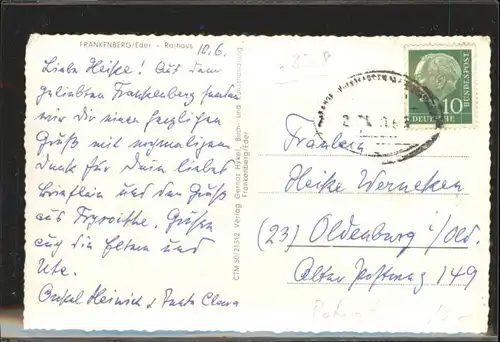 FRANKENBERG/Eder - Rathaus
10.6.
Liebe Heike! Aus dem
geliebten Frankenberg senden
wir Dir einen herzlichen
Gruß mit nochmaligem
Dank für Dein liebes
Brieflein und den Gruß
aus Grüßen
auch die Eltern und
Ute.
Onkel Heinrich u Tante Clara
CTM 50/21312 Verlag Gernot Hykel, Buch- und Kunsthandlung
Frankenberg/Eder
10
DEUTSCHE
BUNDESPOST
Fräulein
Heike Wernecken
(23) Oldenburg i/Old.
Alter Postweg 149